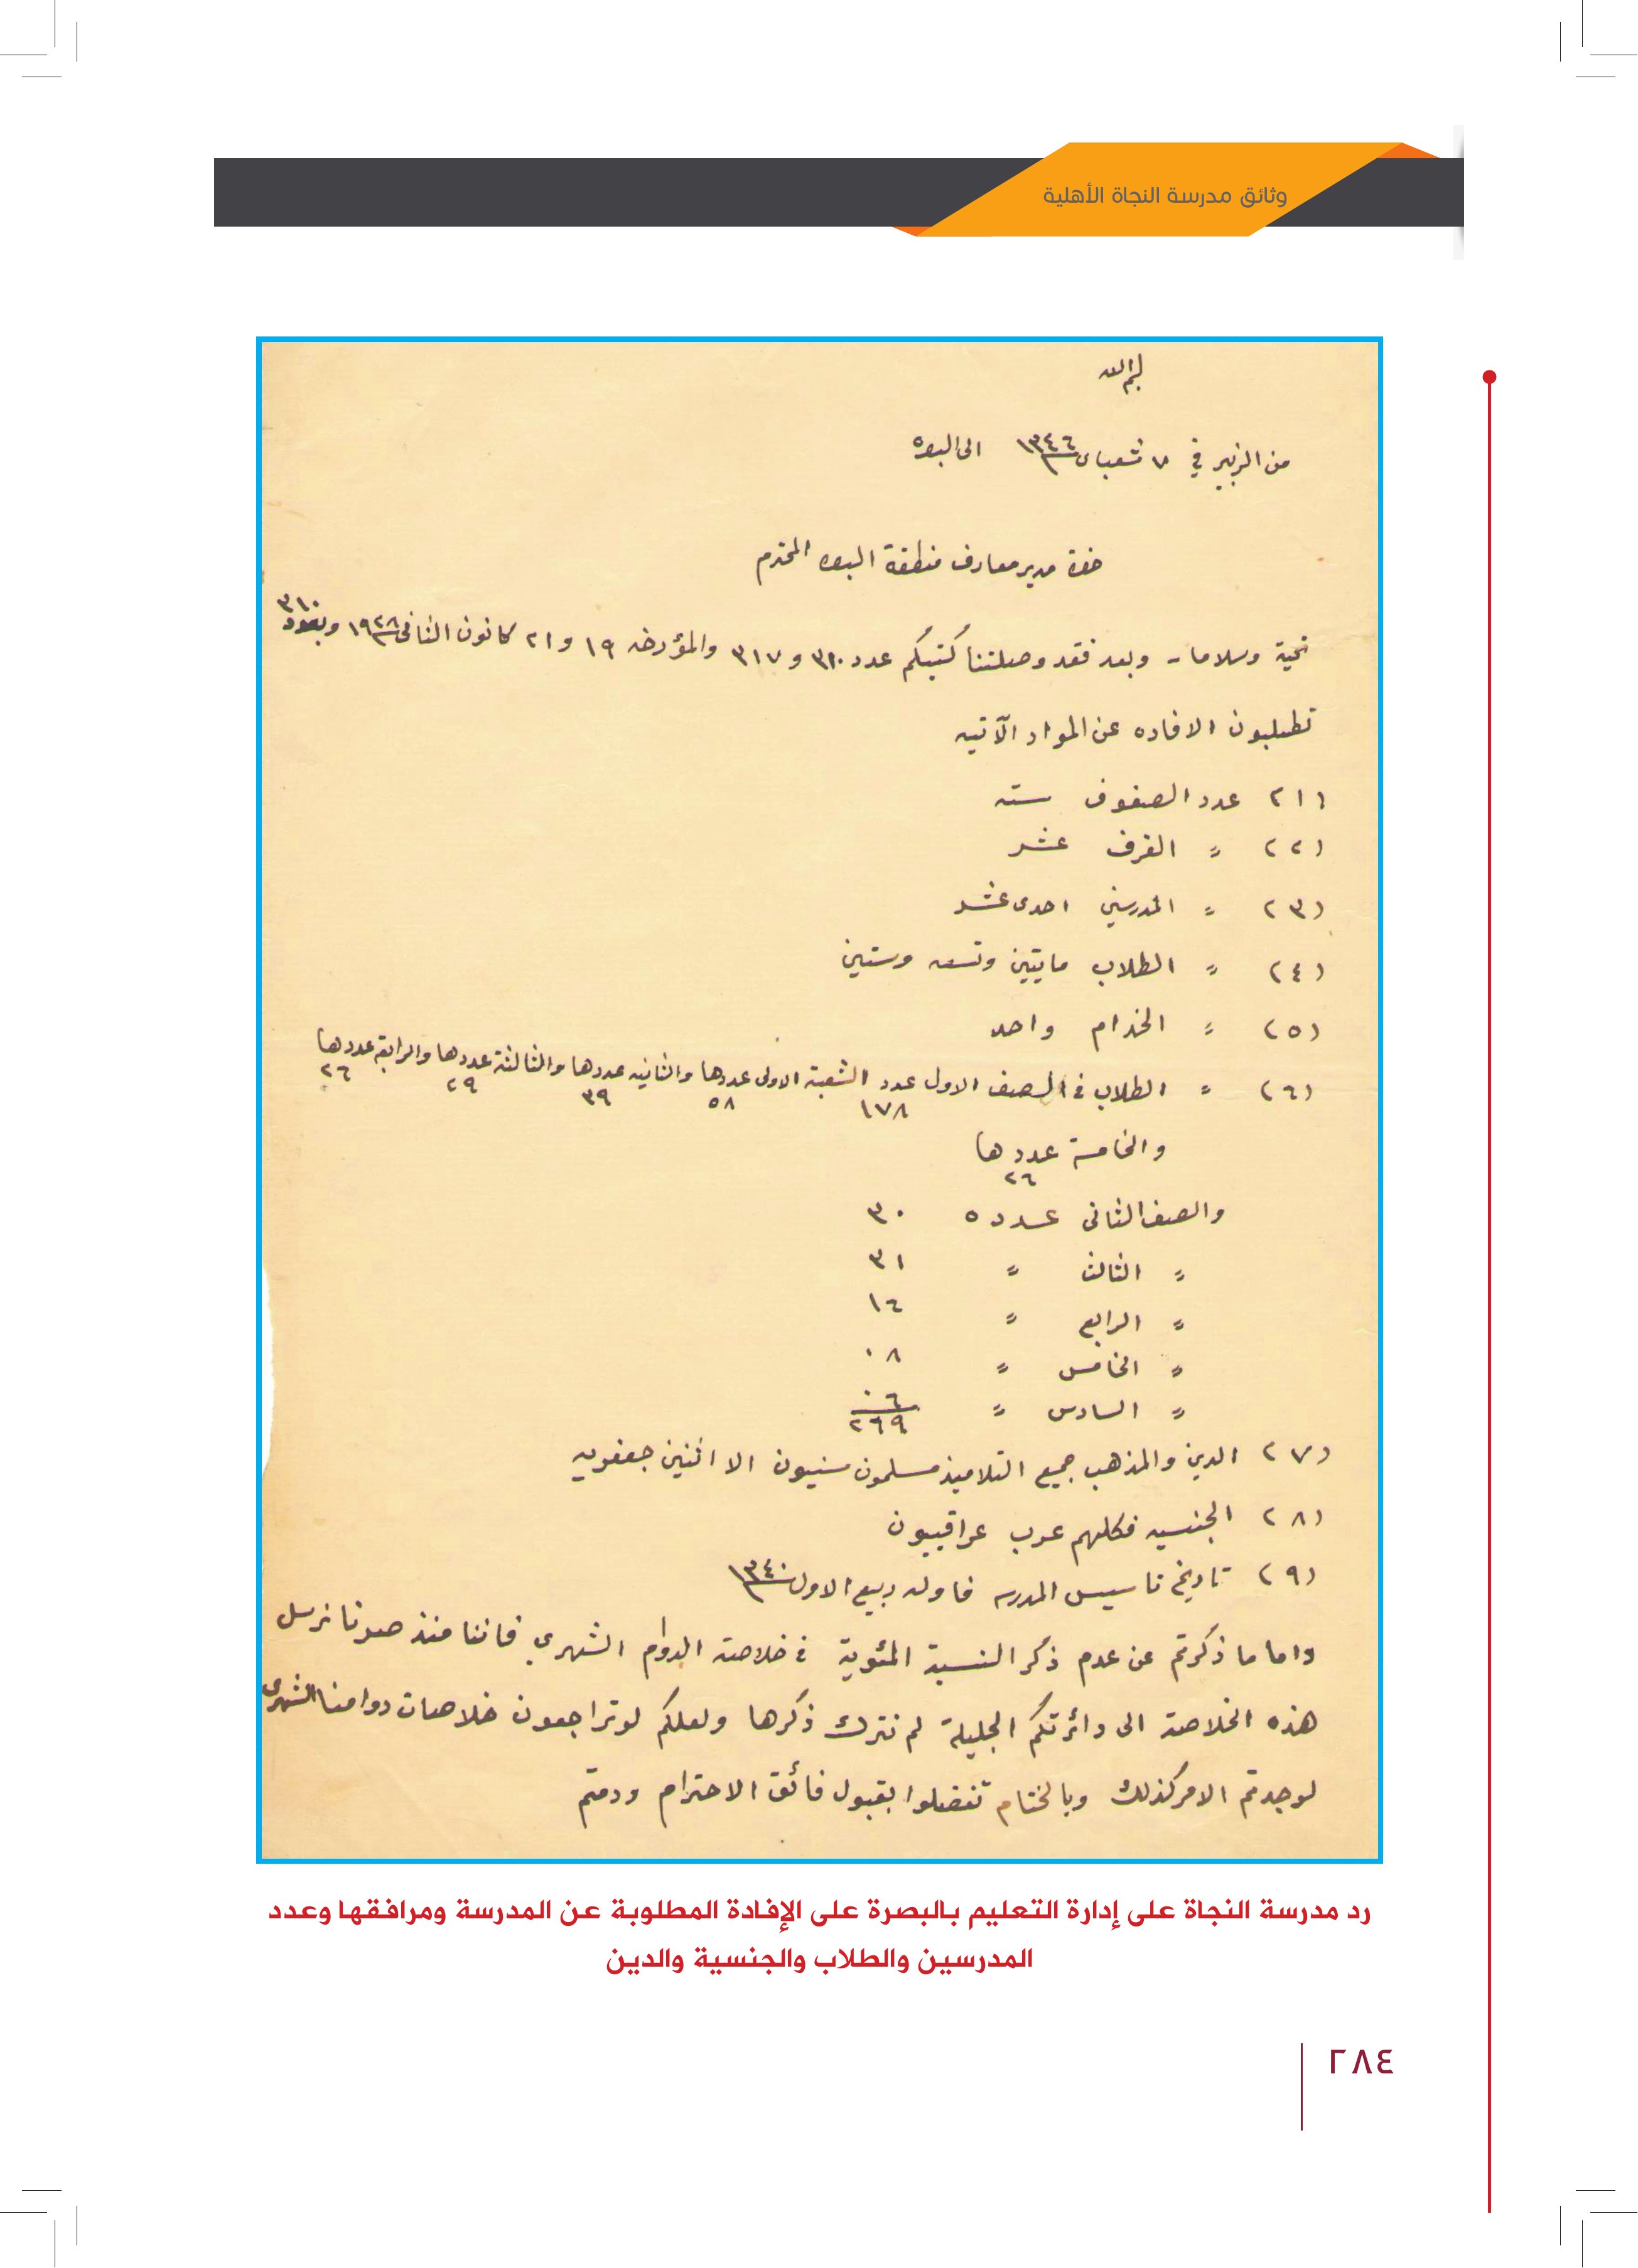 وثائق مدرسة النجاة الأهلية
بسم الله
من الزبير في ٧ شعبان ١٣٤٦ الى البصره
حضرة مدير معارف منطقة البصره المحترم
تحية وسلاما - وبعد فقد وصلتنا كتبكم عدد ٣١٠ و ٣١٧ والمؤرخه ١٩ و ٢١ كانون الثاني ١٩٢٨ وبعدد ٣١٠
تطلبون الافاده عن المواد الآتيه
(١) عدد الصفوف سته
(٢) = الغرف عشر
(٣) = المدرسين احدى عشر
(٤) = الطلاب مايتين وتسعه وستين
(٥) = الخدام واحد
(٦) = الطلاب في الصف الاول عدد ١٧٨ الشعبة الاولى عددها ٥٨ والثانيه عددها ٣٩ والثالثة عددها ٢٩ والرابعة عددها ٢٦
والخامسة عددها ٢٦
والصف الثاني عدده ٣٠
= الثالث = ٣١
= الرابع = ١٦
= الخامس = ٠٨
= السادس = ٠٦
٢٦٩
(٧) الدين والمذهب جميع التلاميذ مسلمون سنيون الا اثنين جعفريه
(٨) الجنسيه فكلهم عرب عراقييون
(٩) تاريخ تاسيس المدرسه فاوله ربيع الاول ١٣٤٠
واما ما ذكرتم عن عدم ذكر النسبة المئوية في خلاصة الدوام الشهري فاننا منذ صرنا نرسل
هذه الخلاصة الى دائرتكم الجليلة لم نترك ذكرها ولعلكم لو تراجعون خلاصات دوامنا الشهري
لوجدتم الامر كذلك وبالختام تفضلوا بقبول فائق الاحترام ودمتم
رد مدرسة النجاة على إدارة التعليم بالبصرة على الإفادة المطلوبة عن المدرسة ومرافقها وعدد
المدرسين والطلاب والجنسية والدين
٢٨٤